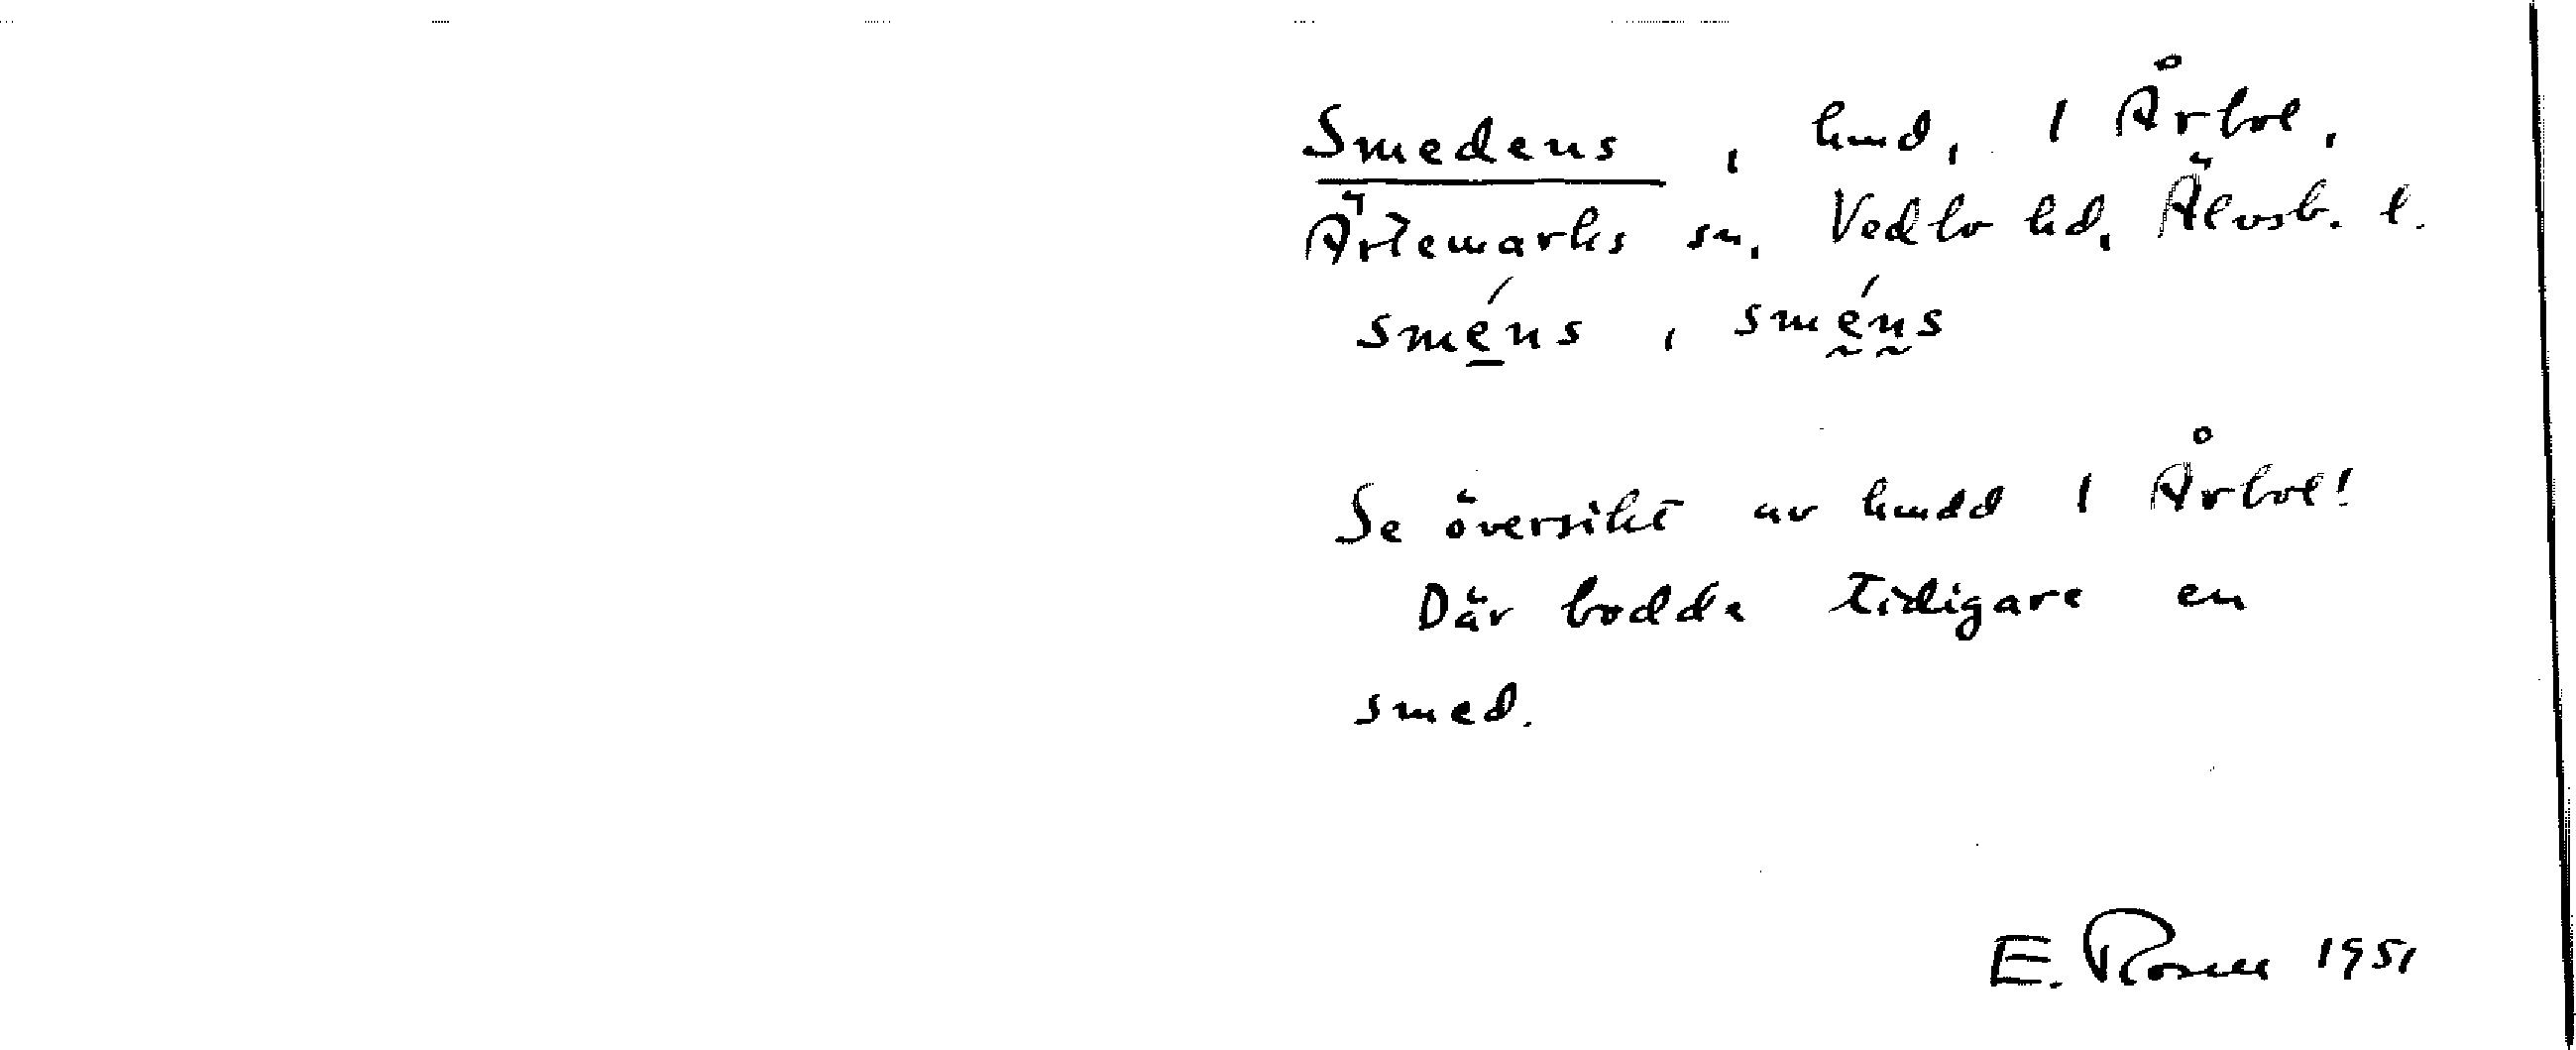 Smedens, hmd, i Årbol,
Ärtemarks sn, Vedbo hd, Älvsb. l.
sméns, sméns
Se översikt av hmdd i Årbol!
Där bodde tidigare en
smed.
E. 1951